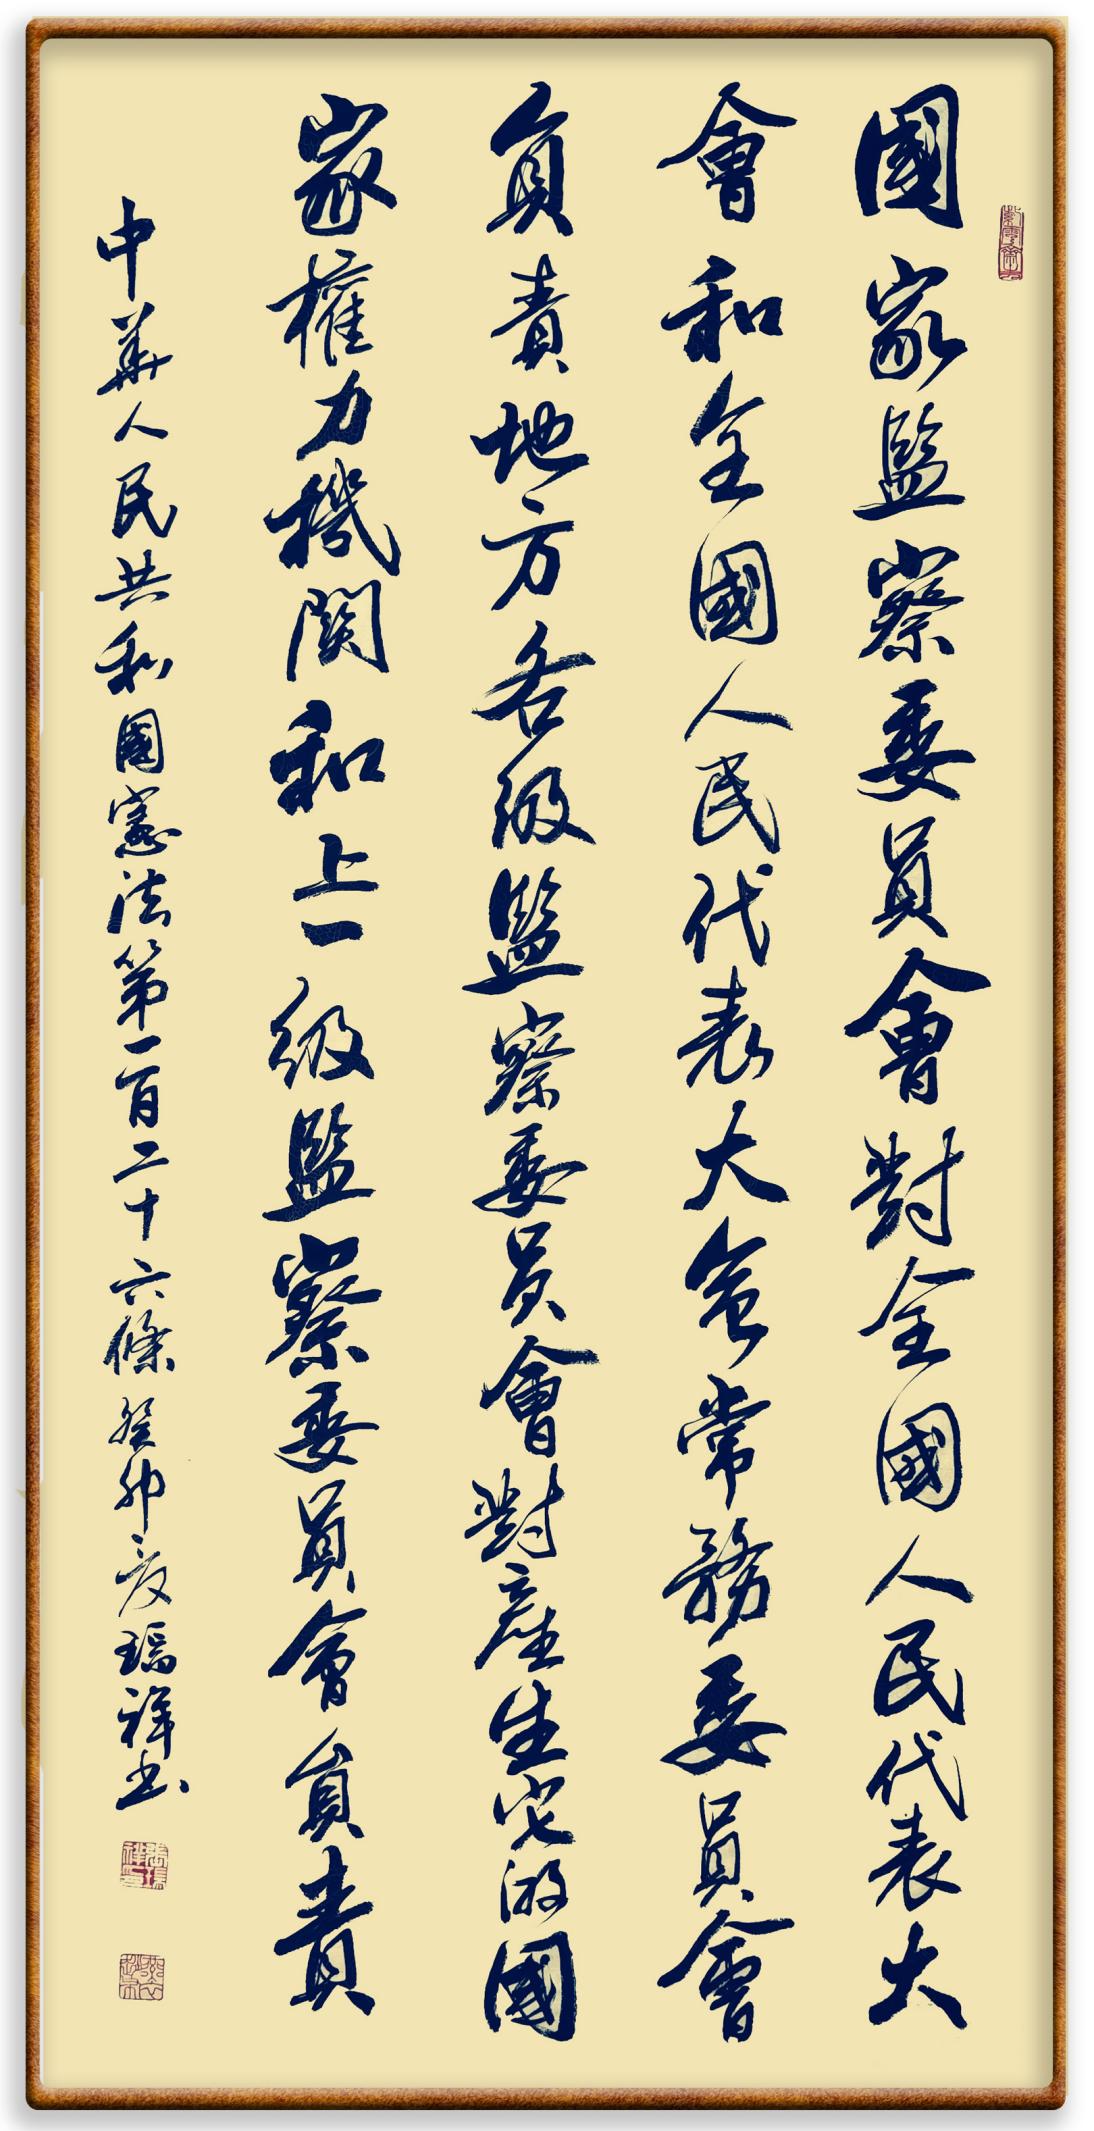 國家監察委員會對全國人民代表大
會和全國人民代表大會常務委員會
負責地方各級監察委員會對產生它的國
家權力機關和上一級監察委員會負責
中華人民共和國憲法第一百二十六條癸卯夏瑞祥書